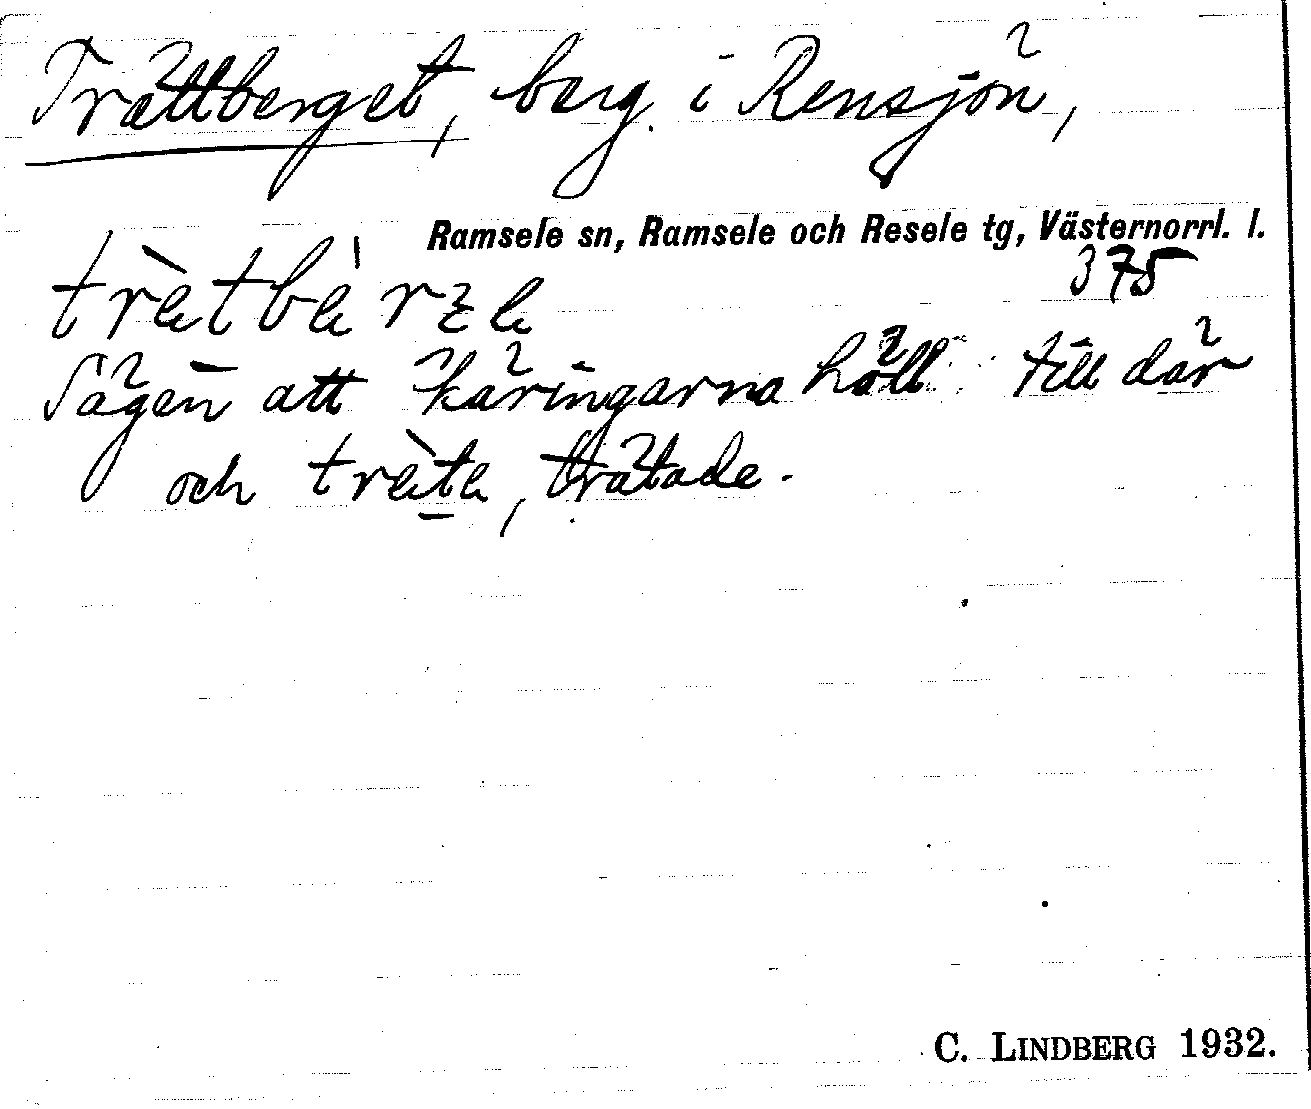 Trättberget, berg i Rensjön,
Ramsele sn, Ramsele och Resele tg, Västernorrl. l.
375
Sägen att käringarna höll till där
och träta, trätade.
C. LINDBERG 1932.